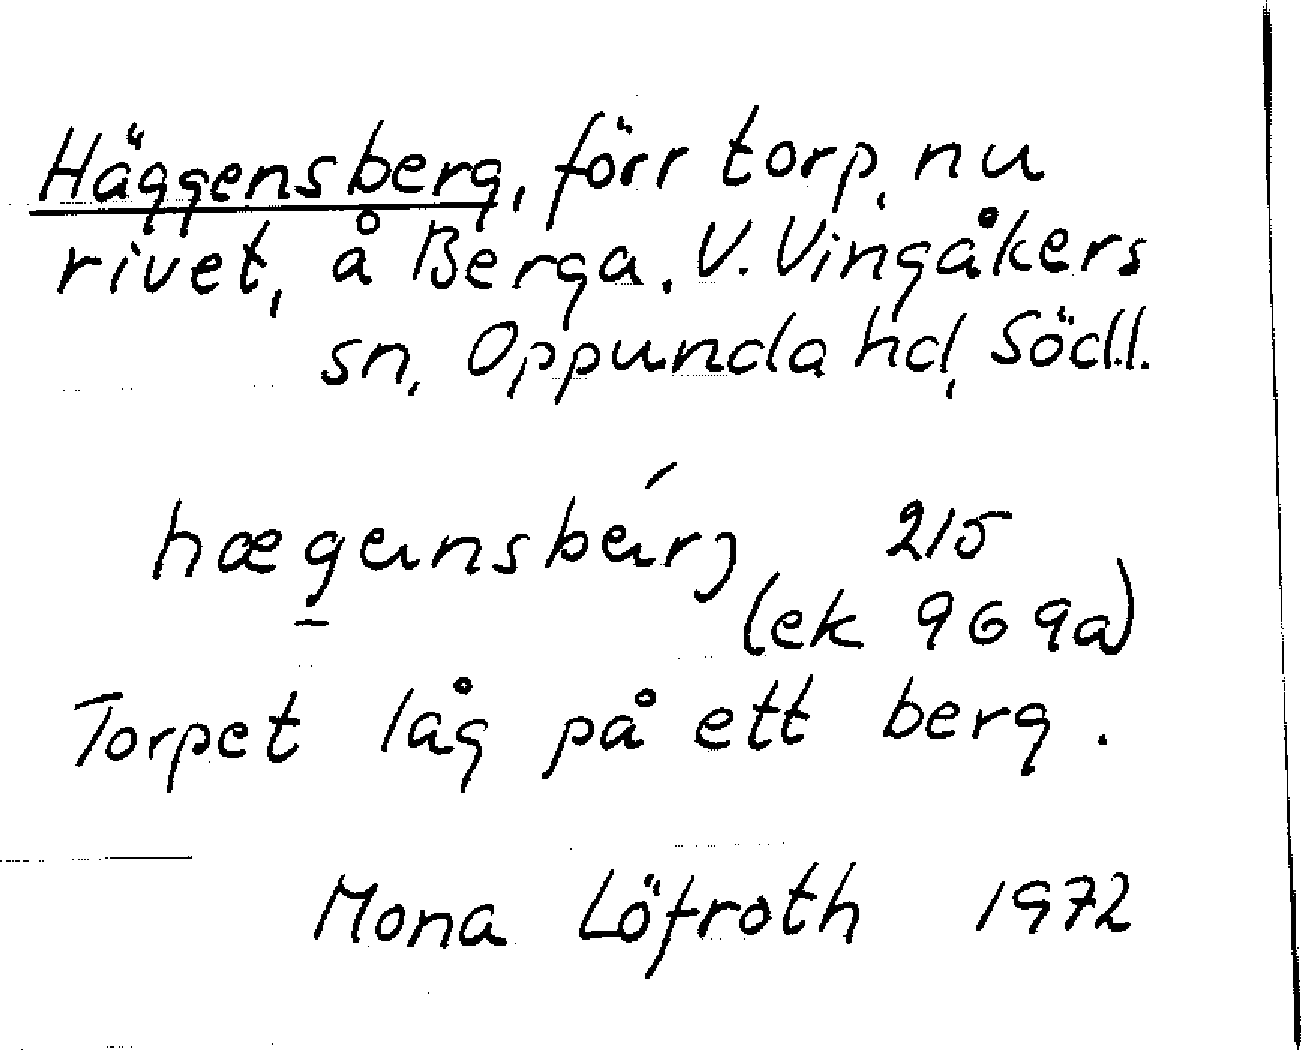 Häggensberg, förr torp, nu
rivet, å Berga, V. Vingåkers
sn, Oppunda hd, Södl.
215
(ek 969a)
Torpet låg på ett berg.
Mona Löfroth 1972